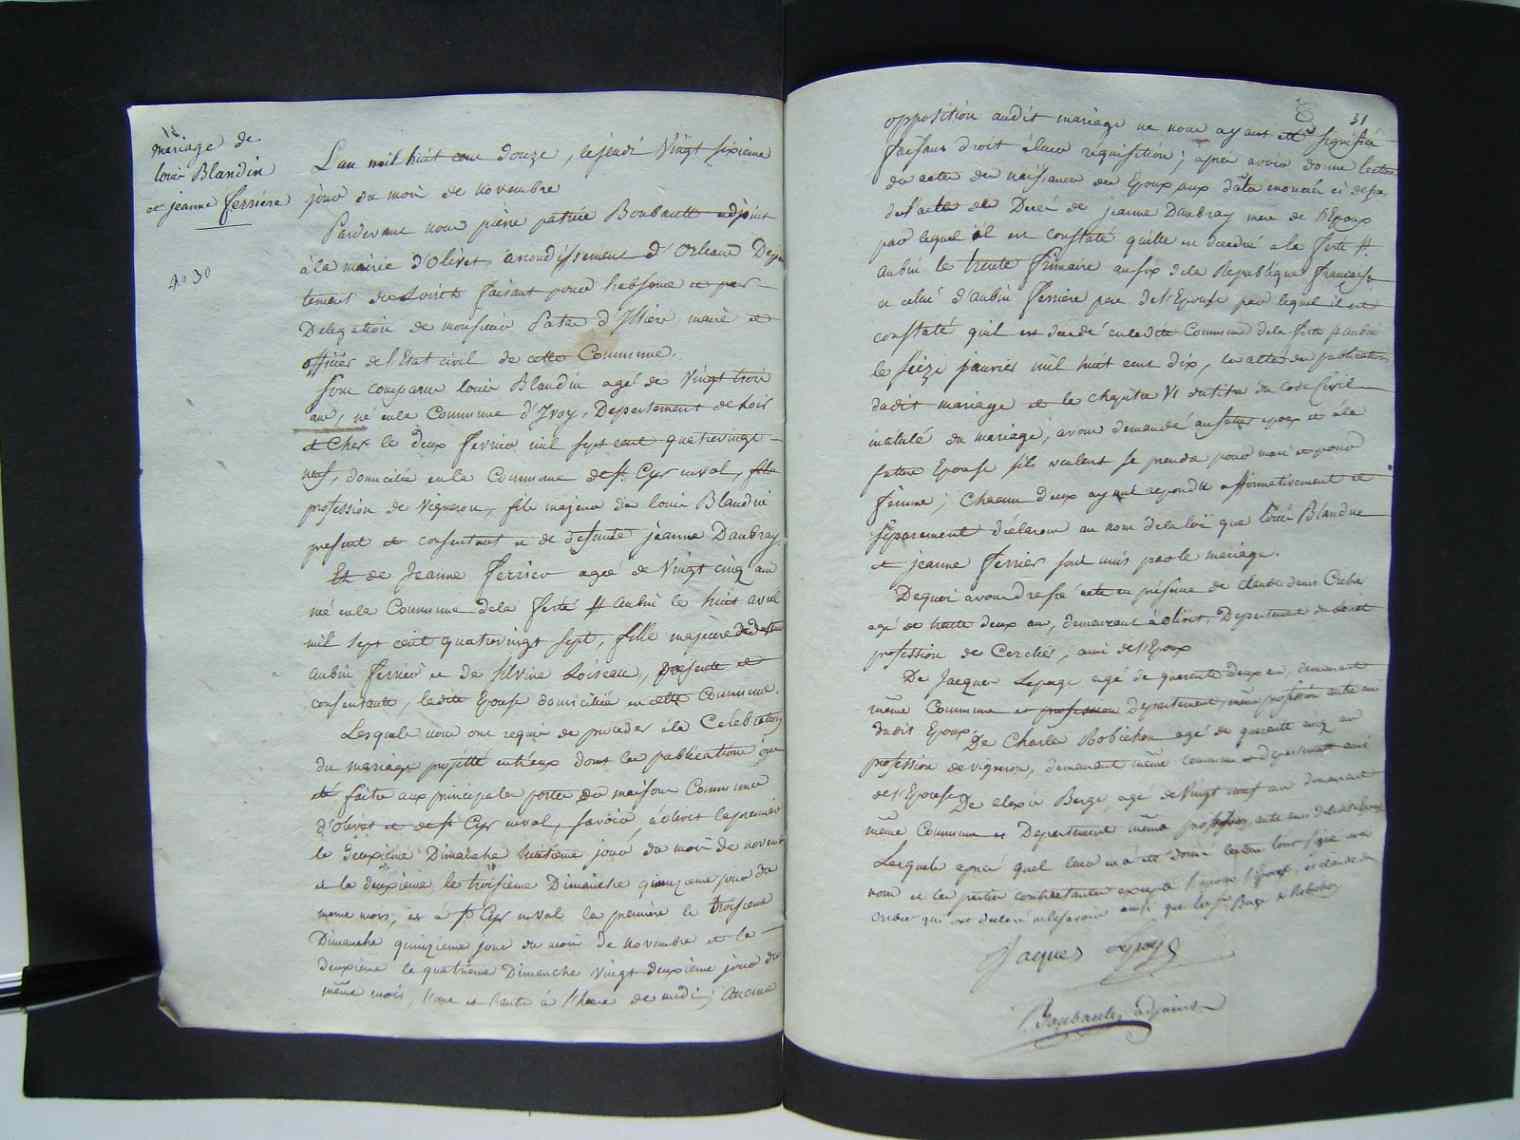 12.
Mariage de
louis Blandin
et jeanne ferrière
L'an mil huit cent douze, le jeudi Vingt sixieme
jour du mois de novembre
Pardevant nous pierre patrice Boubault adjoint
à la mairie d'Olivet arrondissement d'Orleans Depar
tement du Loiret faisant pour l'absence et par
Delegation de monsieur Pata d'Illiers maire et
officier de l'Etat civil de cette Commune.
Sont comparus louis Blandin agé de Vingt trois
ans, né en la Commune d'Yvoy, Departement de Loir
et Cher le deux fevrier mil sept cent quatrevingt
neuf, domicilié en la Commune de St Cyr en val,
profession de Vigneron, fils majeur de louis Blandin
present et consentant et de defunte jeanne Daubray.
Et de Jeanne ferrier agée de Vingt cinq ans
née en la Commune de la ferté St aubin le huit avril
mil sept cent quatrevingt sept, fille majeure de defunt
aubin ferrier et de silvine Loiseau, presente et
consentante, ladite Epouse domiciliée en cette Commune.
Lesquels nous ont requis de proceder à la Celebration
du mariage projetté entr'eux dont les publications ont
été faites aux principales portes des maisons Communes
d'Olivet et de St Cyr en val, savoir, à olivet la premiere
le deuxieme Dimanche huitieme jour du mois de novembre
et la deuxieme le troisieme Dimanche quinzieme jour du
meme mois, et à St Cyr en val la premiere le troisieme
Dimanche quinzieme jour du mois de novembre et la
deuxieme le quatrieme Dimanche vingt deuxieme jour du
même mois, à l'heure de midi; aucune
31
opposition audit mariage ne nous ayant été signifiée
faisant droit à leur réquisition; après avoir donné lecture
des actes de naissance des Epoux aux dates enoncées ci dessus
de l'acte de Décès de jeanne Daubray mere de l'Epoux
par lequel il est constaté qu'elle est decedée à la ferté St
aubin le trente frimaire an six de la Republique française
et celui d'aubin ferrière pere de l'Epouse par lequel il est
constaté qu'il est decedé en ladite Commune de la ferté St aubin
le seize janvier mil huit cent dix, les actes des publications
dudit mariage et le chapitre VI du titre du code Civil
intitulé du mariage, avons demandé au futur epoux et à la
future Epouse s'ils veulent se prendre pour mari et pour
femme; chacun d'eux ayant repondu affirmativement et
séparement declarons au nom de la loi que louis Blandin
et jeanne ferrier sont unis par le mariage.
Dequoi avons dressé acte en présence de claude denis
agé de trente deux ans, demeurant à olivet, Departement du Loiret
profession de Cerclier, ami de l'Epoux
De Jacques Lepage agé de quarante deux ans, demeurant
même Commune et departement, même profession aussi ami
dudit Epoux
De Charles Robichon agé de quarante cinq ans
profession de vigneron, demeurant même commune et departement ami
de l'Epouse
De Berge agé de Vingt neuf ans demeurant
même Commune et Departement même profession aussi ami de ladite Epouse
Lesquels après qu'il leur en a été donné lecture l'ont signé avec
nous et les parties contractantes excepté
qui ont declaré ne le savoir ainsi que les Srs Berge et Robichon
Jacques Lepage
Boubault adjoint